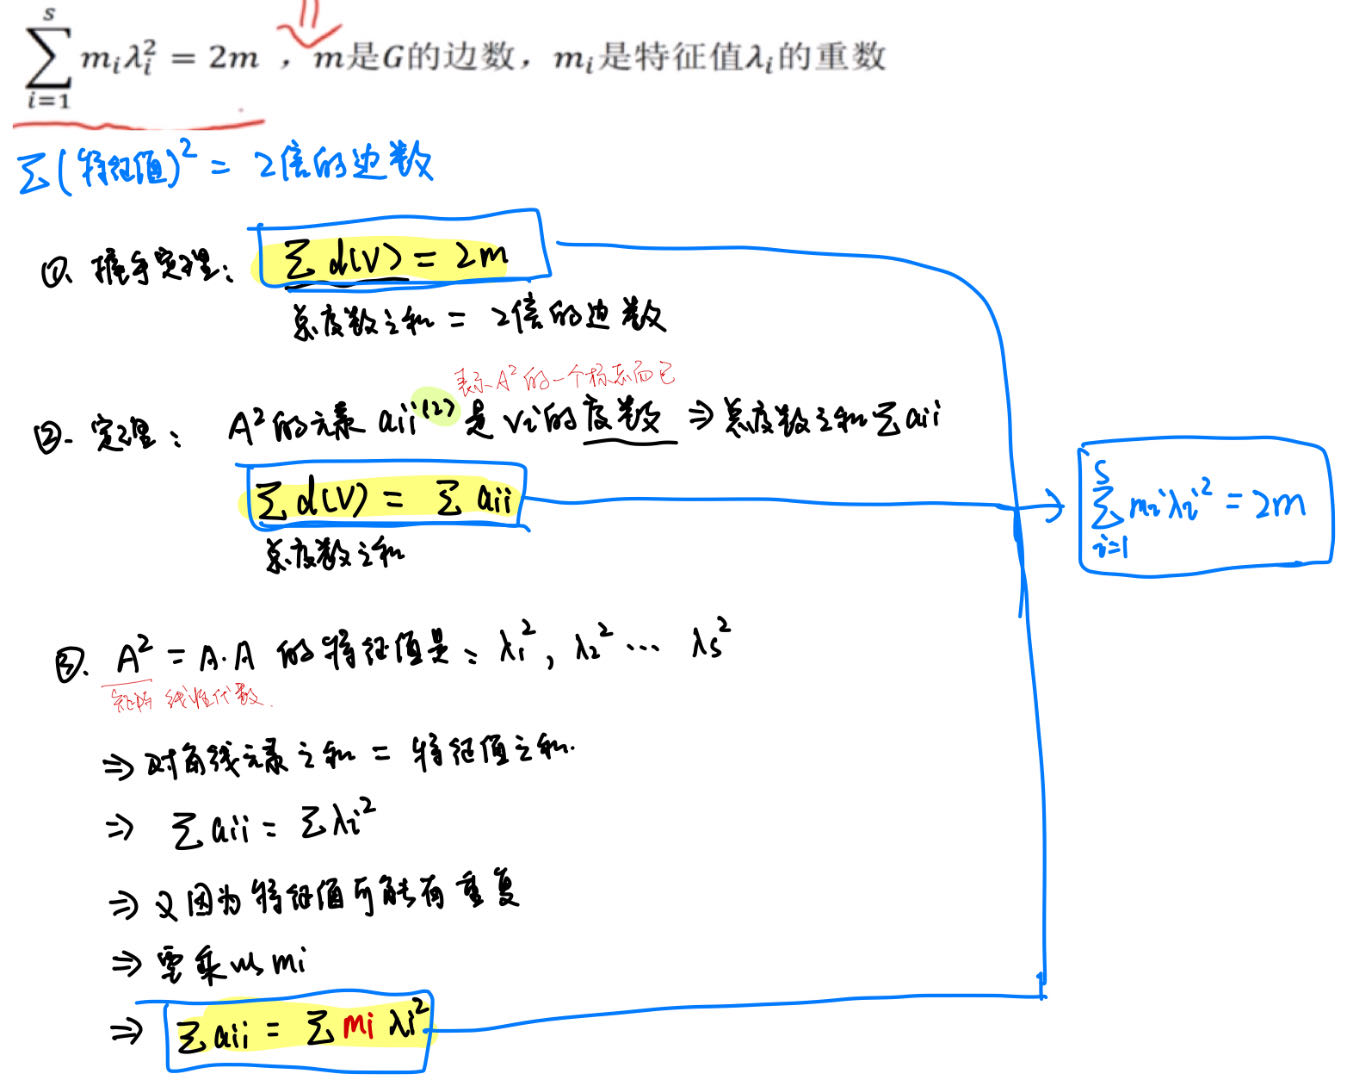 $\sum_{i=1}^{s} m_i\lambda_i^2 = 2m$ ，m是G的边数，$m_i$是特征值$\lambda_i$的重数
Σ(特征值)² = 2倍的边数
①. 握手定理： Σ d(V) = 2m
总度数之和 = 2倍的边数
表示A²的一个标志而已
②. 定理： A²的元素 aii⁽²⁾ 是 vi的度数 ⇒ 总度数之和 Σ aii
Σ d(V) = Σ aii
总度数之和
$\sum_{i=1}^{s} m_i\lambda_i^2 = 2m$
③. A² = A·A 的特征值是： λ₁², λ₂² ··· λs²
矩阵 线性代数.
⇒ 对角线元素之和 = 特征值之和.
⇒ Σ aii = Σ λi²
⇒ 又因为特征值可能有重复
⇒ 需乘以 mi
⇒ Σ aii = Σ mi λi²